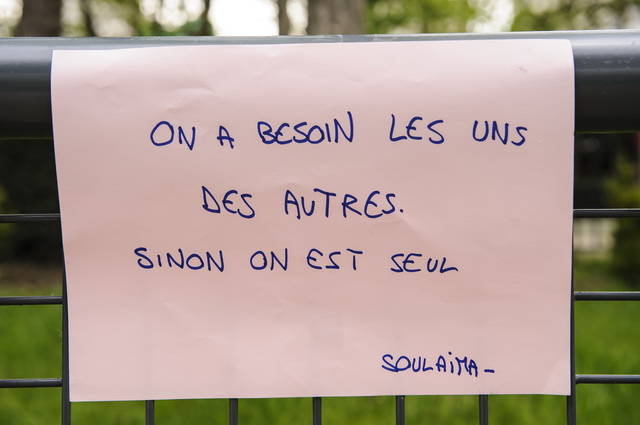 ON A BESOIN LES UNS
DES AUTRES.
SINON ON EST SEUL
SOULAiMA-